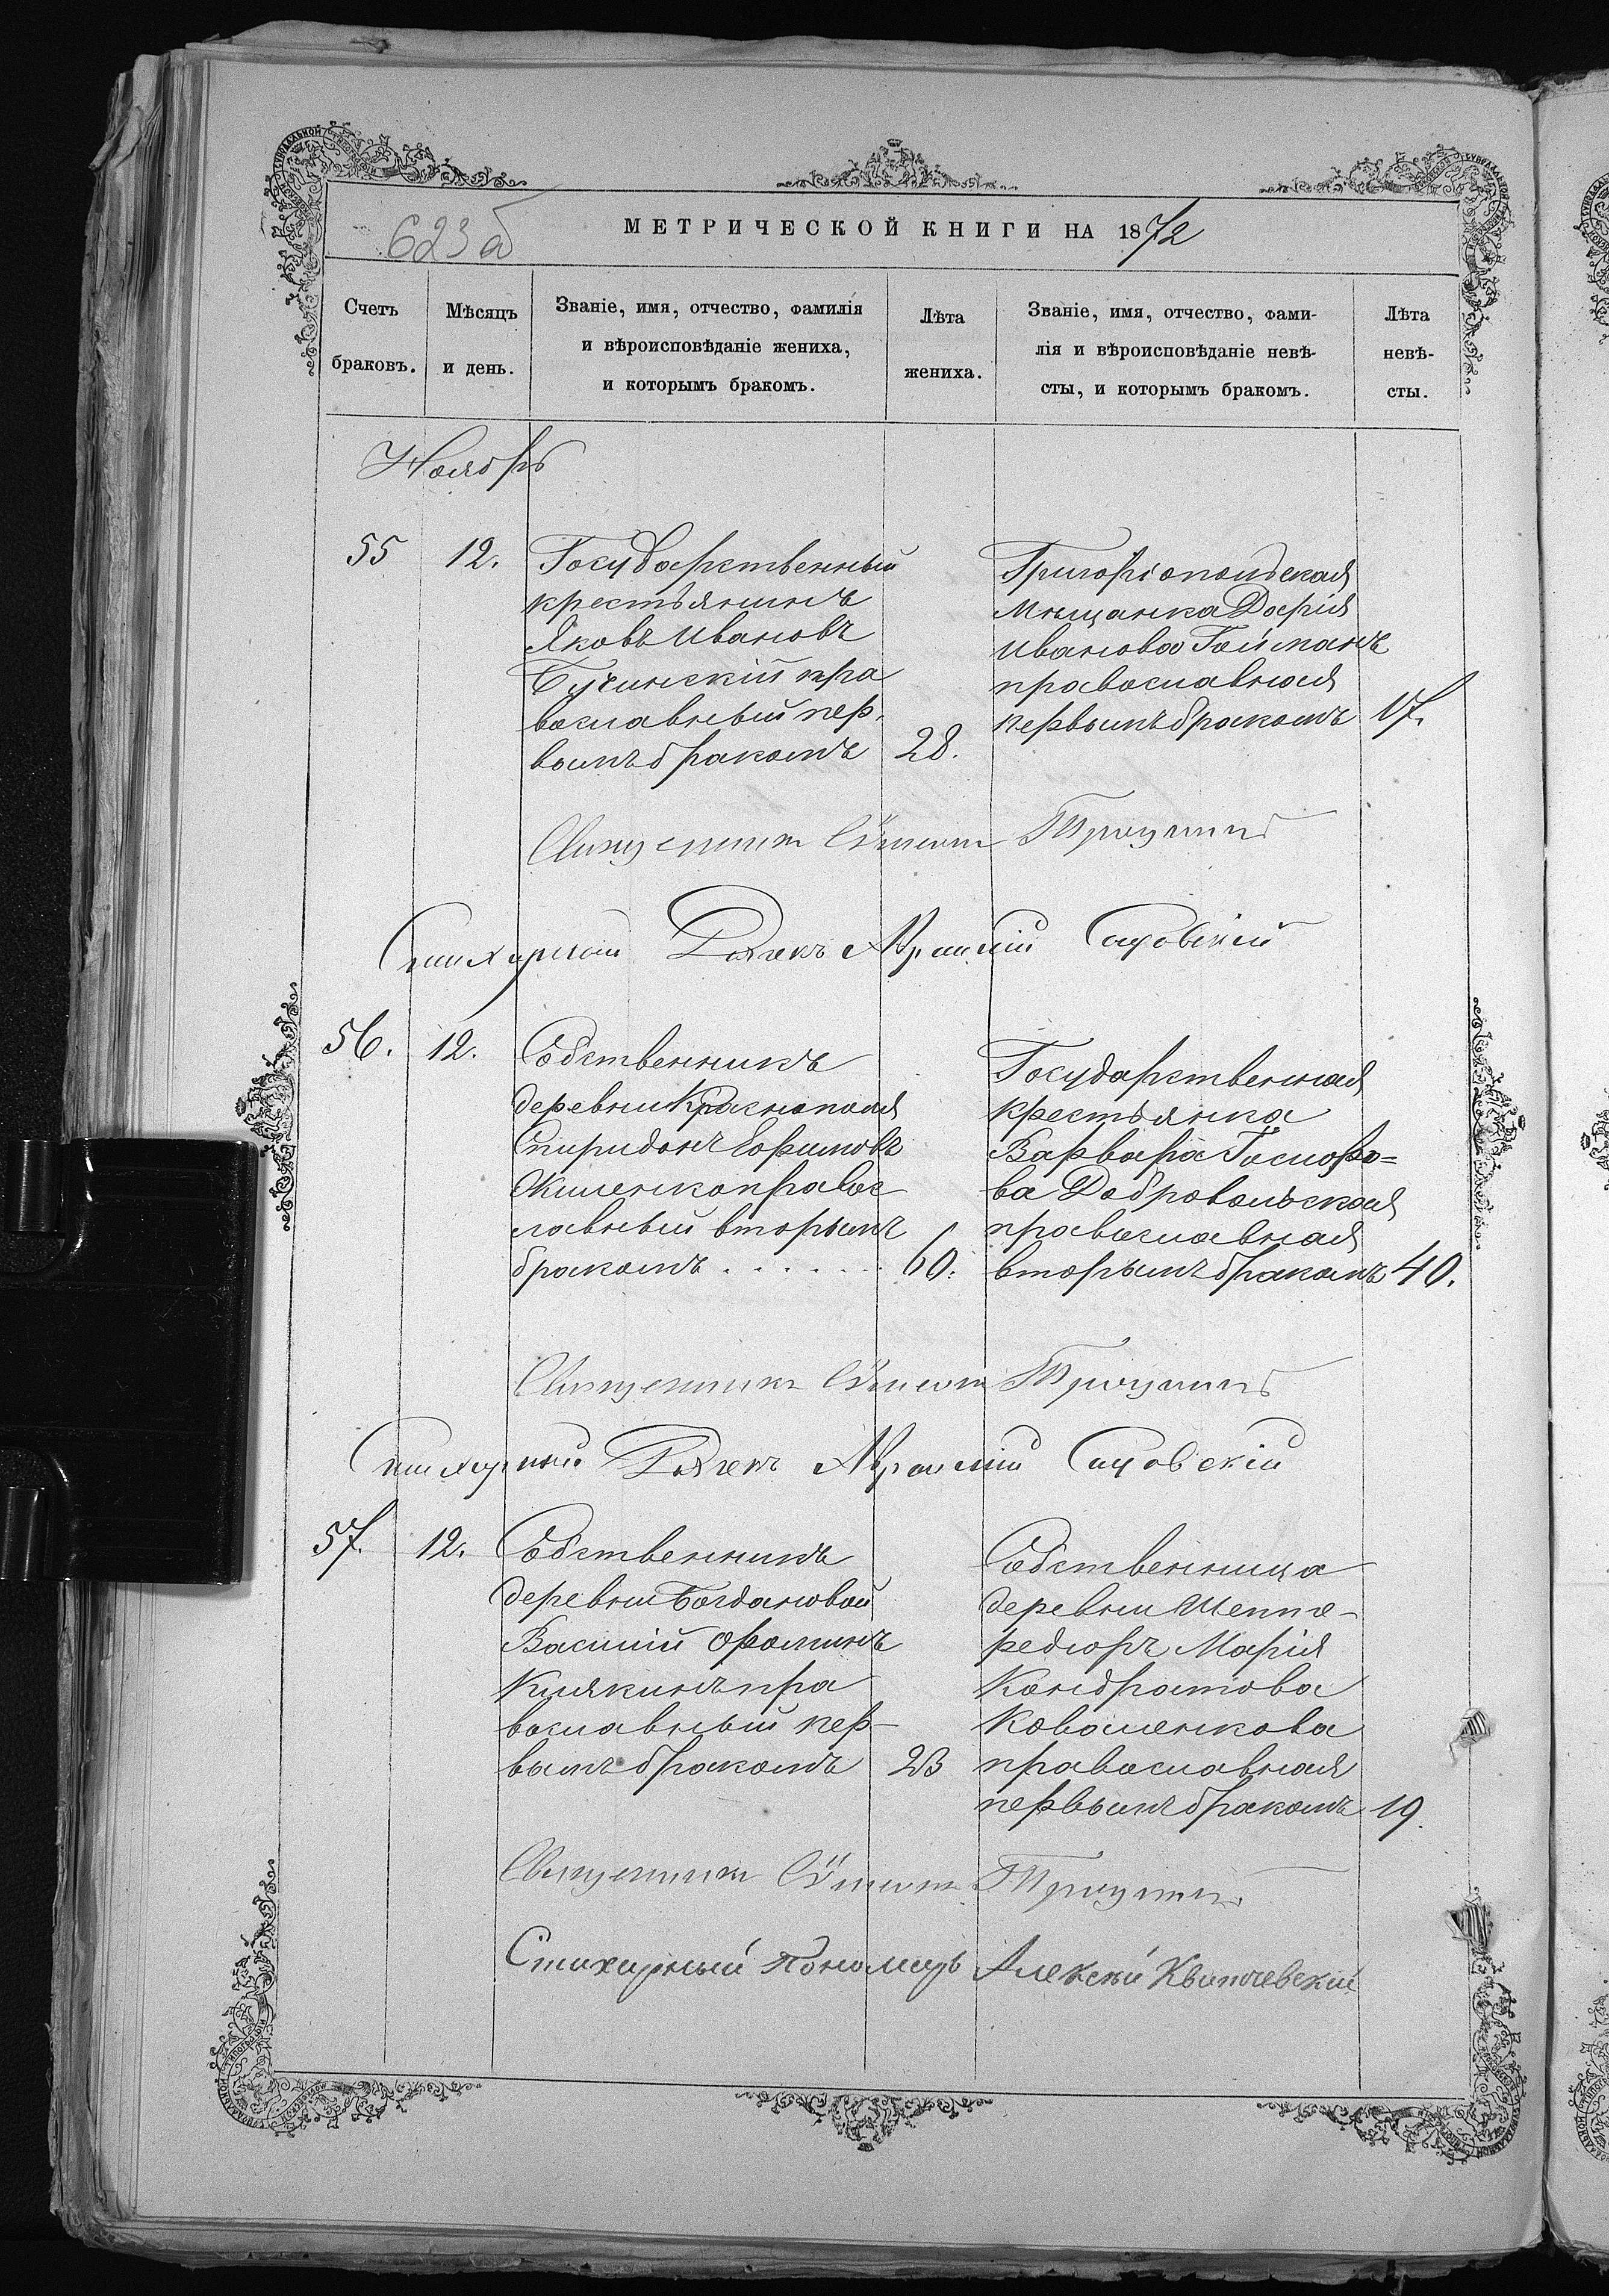 623 об
МЕТРИЧЕСКОЙ КНИГИ НА 1872
Счетъ браковъ.
Мѣсяцъ и день.
Званіе, имя, отчество, фамилія
и вѣроисповѣданіе жениха,
и которымъ бракомъ.
Лѣта
жениха.
Званіе, имя, отчество, фами-
лія и вѣроисповѣданіе невѣ-
сты, и которымъ бракомъ.
Лѣта
невѣ-
сты.
Ноябрь
55
12.
Государственный
крестьянинъ
Яковъ Ивановъ
Бучинскій пра
вославный пер-
вымъ бракомъ
28.
Григоріопольская
мѣщанка Дарія
Иванова Гойманъ
православная
первымъ бракомъ
17.
Священникъ Симеонъ
Стихарный Дьячекъ
56.
12.
Собственникъ
деревни Краснополя
Спиридонъ Ефимовъ
Жиленко правос
лавный вторымъ
бракомъ . . . . . .
60.
Государственная
крестьянка
Варвара
ва Добровольская
православная
вторымъ бракомъ
40.
Священникъ Симеонъ
Стихарный Дьячекъ
57.
12.
Собственникъ
деревни Богдановой
Василій Фоминъ
Княкинъ пра
вославный пер-
вымъ бракомъ
23
Собственница
деревни Шепте-
редюръ Марія
Кондратова
Коваленкова
православная
первымъ бракомъ
19.
Священникъ Симеонъ
Стихарный Пономарь Алексѣй